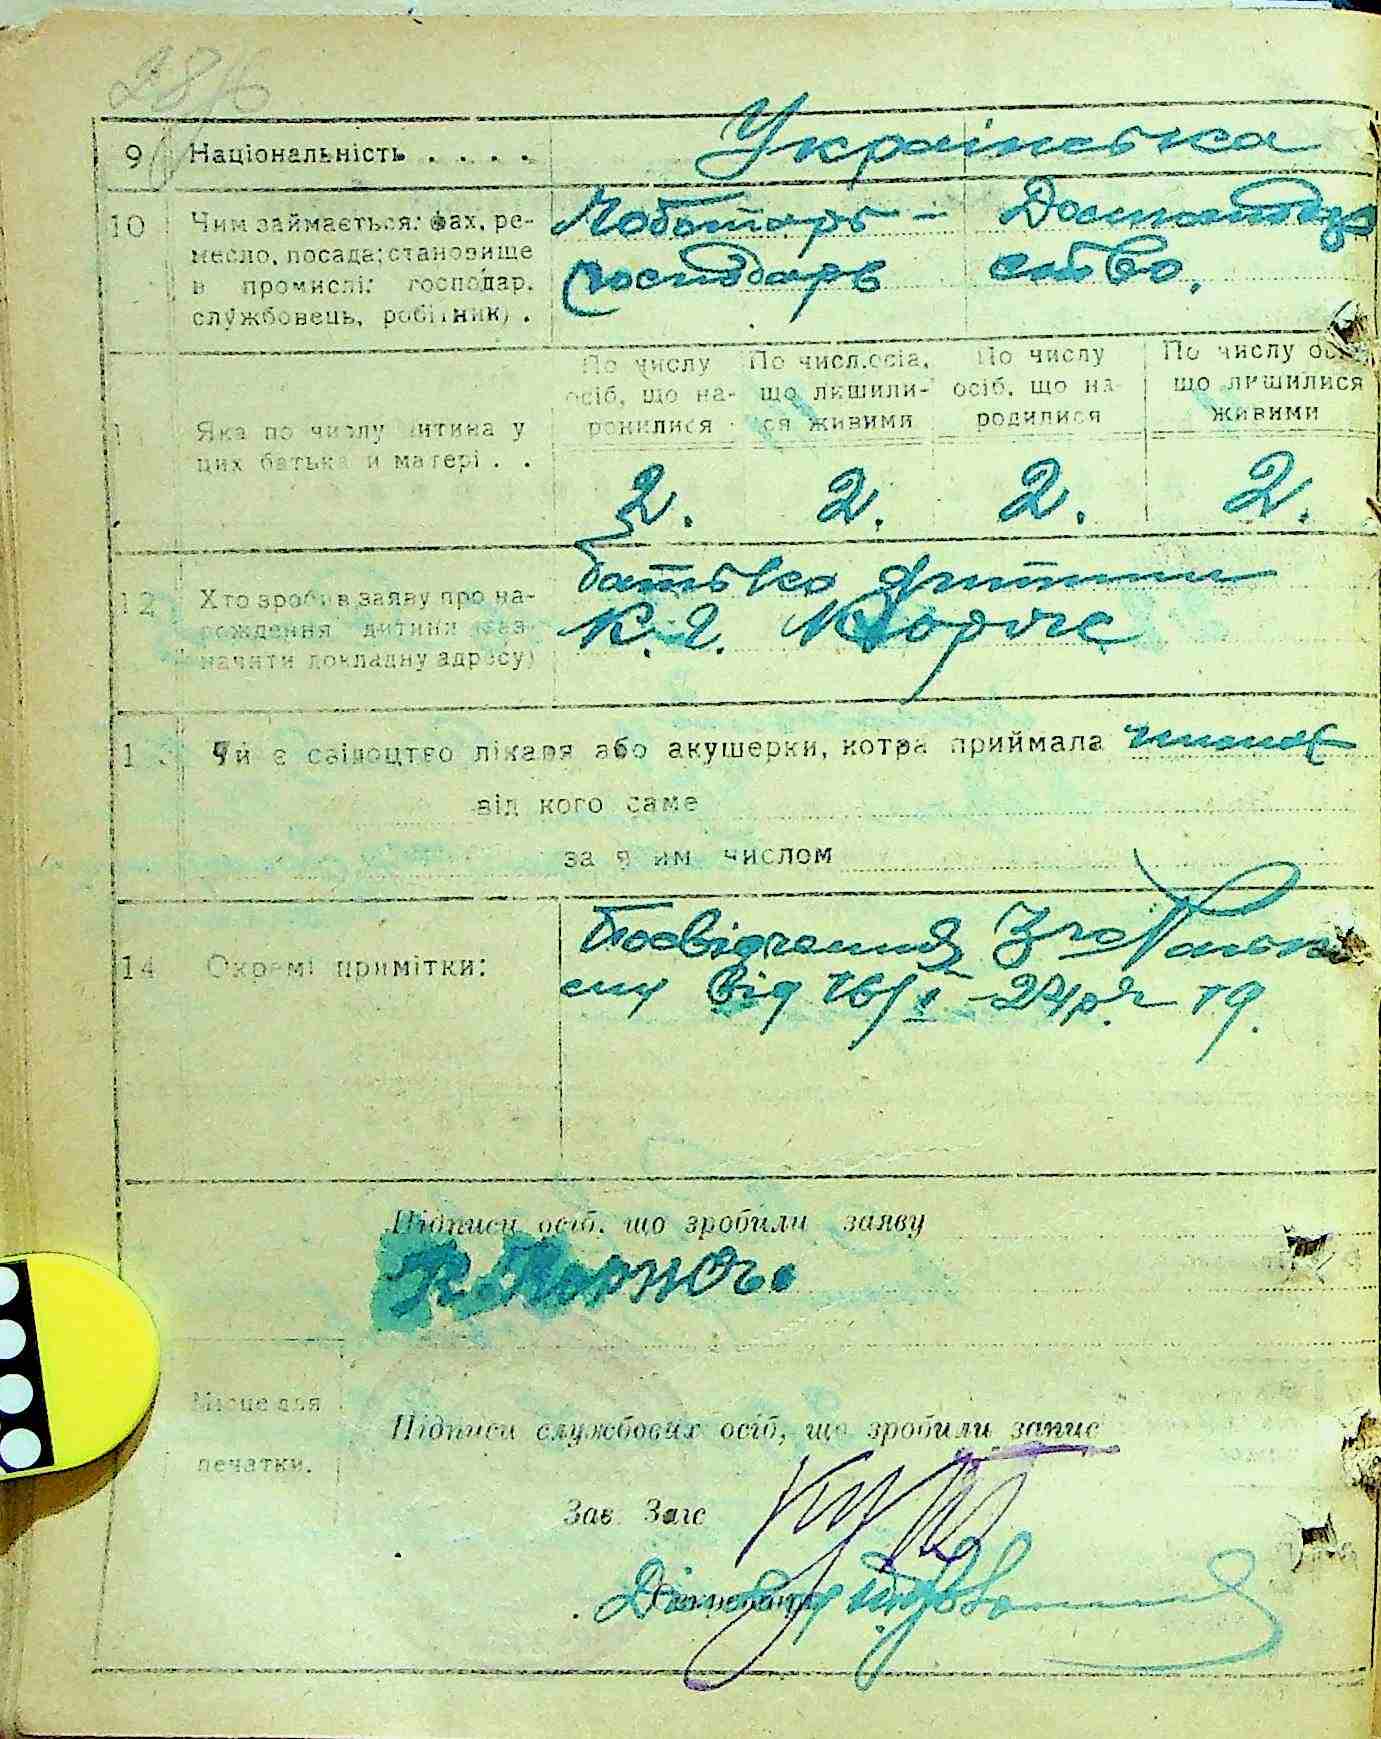 9 Національність . . . . Українська
10 Чим займається: фах, ре-
месло, посада; становище
в промислі: господар,
службовець, робітник) .
Чоботарь - Домогосподар
господарь ство.
По числу осіб, що на- родилися
По числ.осіб, що лишили- ся живими
По числу осіб, що на- родилися
По числу осіб, що лишилися живими
11 Яка по числу дитина у
цих батька й матері . .
2. 2. 2. 2.
12 Хто зробив заяву про на-
рождення дитини (заз-
начити докладну адресу)
батько дитини
К. г.
13 Чи є свідоцтво лікаря або акушерки, котра приймала немає
від кого саме
за яким числом
14 Окремі примітки:
Посвідчення
від 16/ 24р. 19.
Підписи осіб, що зробили заяву
Місце для
печатки.
Підписи службових осіб, що зробили запис
Зав. Загс
Діловод